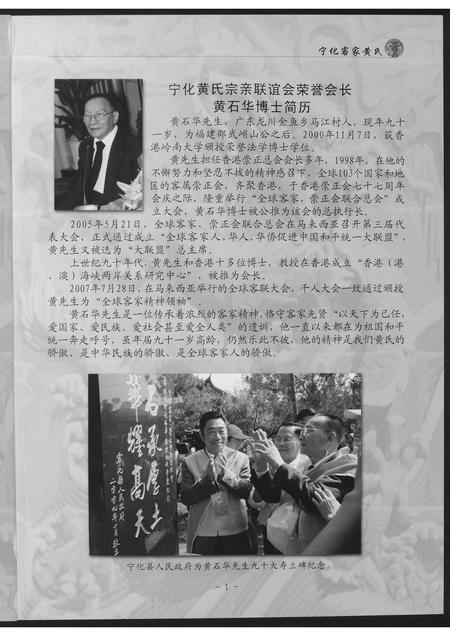 宁化客家黄氏
宁化黄氏宗亲联谊会荣誉会长
黄石华博士简历
黄石华先生，广东龙川金鱼乡马江村人，现年九十
一岁，为福建邵武峭山公之后。2000年11月7日，获香
港岭南大学颁授荣誉法学博士学位。
黄先生担任香港崇正总会会长多年，1998年，在他的
不懈努力和坚忍不拔的精神感召下，全球103个国家和地
区的客属崇正会，齐聚香港，于香港崇正会七十七周年
会庆之际，隆重举行“全球客家，崇正会联合总会”成
立大会，黄石华博士被公推为该会的总执行长。
2005年5月21日，全球客家，崇正会联合总会在马来西亚召开第三届代
表大会，正式通过成立“全球客家人,华人,华侨促进中国和平统一大联盟”，
黄先生又被选为“大联盟”总主席。
上世纪九十年代,黄先生和香港十多位博士，教授在香港成立“香港（港
、澳）海峡两岸关系研究中心”，被推为会长。
2007年7月28日,在马来西亚举行的全球客联大会，千人大会一致通过颁授
黄先生为“全球客家精神领袖”。
黄石华先生是一位传承着浓烈的客家精神,恪守客家先贤“以天下为己任,
爱国家、爱民族、爱社会甚至爱全人类”的遗训，他一直以来都在为祖国和平
统一奔走呼号，虽年届九十一岁高龄，仍然乐此不疲，他的精神是我们黄氏的
骄傲、是中华民族的骄傲、是全球客家人的骄傲。
石承厚土
华耀高天
宁化县人民政府
二〇〇九年十月敬立
宁化县人民政府为黄石华先生九十大寿立碑纪念。
- 1 -